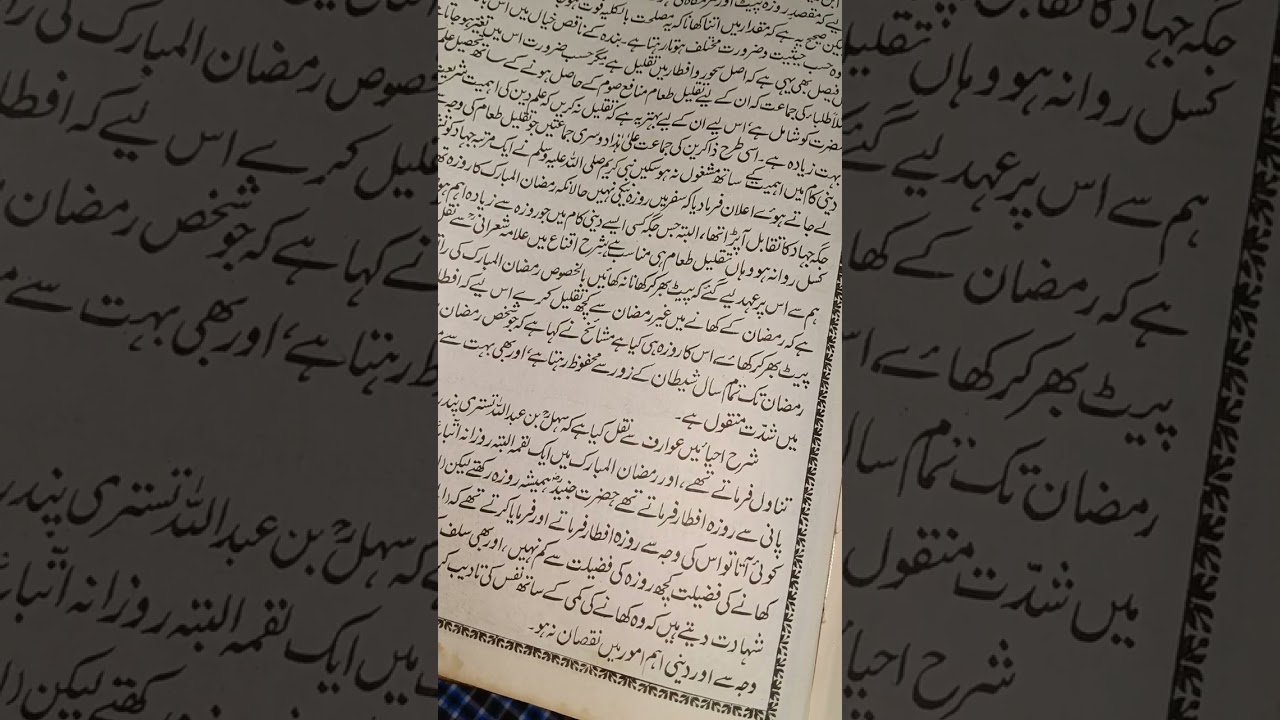 لیے کہ مقصد روزہ
یہ ہے کہ مقدار میں اتنا کھانا کہ یہ مصلحت بالکلیہ فوت ہو
وہ حسب حیثیت و ضرورت مختلف ہوتا رہتا ہے۔ بندہ کے ناقص خیال میں اس
فیصل بھی یہی ہے کہ اصل سحور و افطار میں تقلیل ہے مگر حسب ضرورت اس میں تغیر ہو جاتا
مثلاً طلبار کی جماعت کہ ان کے لیے تقلیل طعام منافع صوم کے حاصل ہونے کے ساتھ تحصیل علم
مضرت کو شامل ہے، اس لیے ان کے لیے بہتر یہ ہے کہ تقلیل نہ کریں کہ علم دین کی اہمیت شریعت
بہت زیادہ ہے۔ اسی طرح ذاکرین کی جماعت علیٰ ہٰذا دوسری جماعتیں جو تقلیل طعام کی وجہ سے
دینی کام میں اہمیت کے ساتھ مشغول نہ ہو سکیں نبی کریم صلی اللہ علیہ وسلم نے ایک مرتبہ جہاد کو
لے جاتے ہوئے اعلان فرمادیا کہ سفر میں روزہ نیکی نہیں حالانکہ رمضان المبارک کا روزہ
جگہ جہاد کا تقابل آپڑا تھا، البتہ جس جگہ کسی ایسے دینی کام میں جو روزہ سے زیادہ اہم ہو
کسل روانہ ہو وہاں تقلیل طعام ہی مناسب ہے، شرح اقناع میں علامہ شعرانیؒ سے نقل
ہم سے اس پر عہد لیے گئے کہ پیٹ بھر کر کھانا نہ کھائیں بالخصوص رمضان المبارک کی
ہے کہ رمضان کے کھانے میں غیر رمضان سے کچھ تقلیل کرے اس لیے کہ افطار
پیٹ بھر کر کھائے اس کا روزہ ہی کیا ہے مشائخ نے کہا ہے کہ جو شخص رمضان
رمضان تک تمام سال شیطان کے زور سے محفوظ رہتا ہے، اور بھی بہت سے
میں شدّت منقول ہے۔
شرح احیا میں عوارف سے نقل کیا ہے کہ سہلؒ بن عبداللہ تستری پندرہ
تناول فرماتے تھے، اور رمضان المبارک میں ایک لقمہ البتہ روزانہ اتّباع
پانی سے روزہ افطار فرماتے تھے حضرت جنیدؒ ہمیشہ روزہ رکھتے لیکن
کوئی آتا تو اس کی وجہ سے روزہ افطار فرماتے اور فرمایا کرتے تھے کہ
کھانے کی فضیلت کچھ روزہ کی فضیلت سے کم نہیں، اور بھی سلف
شہادت دیتے ہیں کہ وہ کھانے کی کمی کے ساتھ نفس کی تادیب
وجہ سے اور دینی اہم امور میں نقصان نہ ہو۔